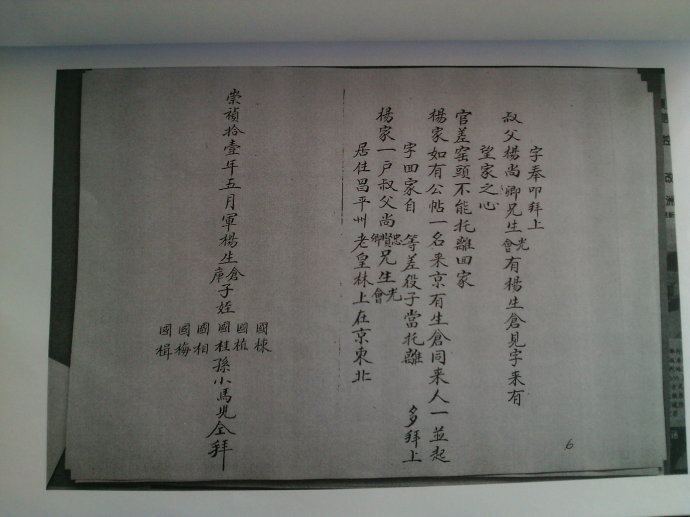 字奉叩拜上
叔父楊尚卿兄生光會有楊生倉見字来有
望家之心
官差窑頭不能托離回家
楊家如有公帖一名来京有生倉同来人一並起
字回家自 等差役子當托離 多拜上
楊家一户叔父尚忠賢卿兄生光會
居住昌平州老皇林上在京東北
崇禎拾壹年五月軍楊生倉庫子姪
國棟
國植
國桂孫小馬児仝拜
國相
國梅
國楫
6